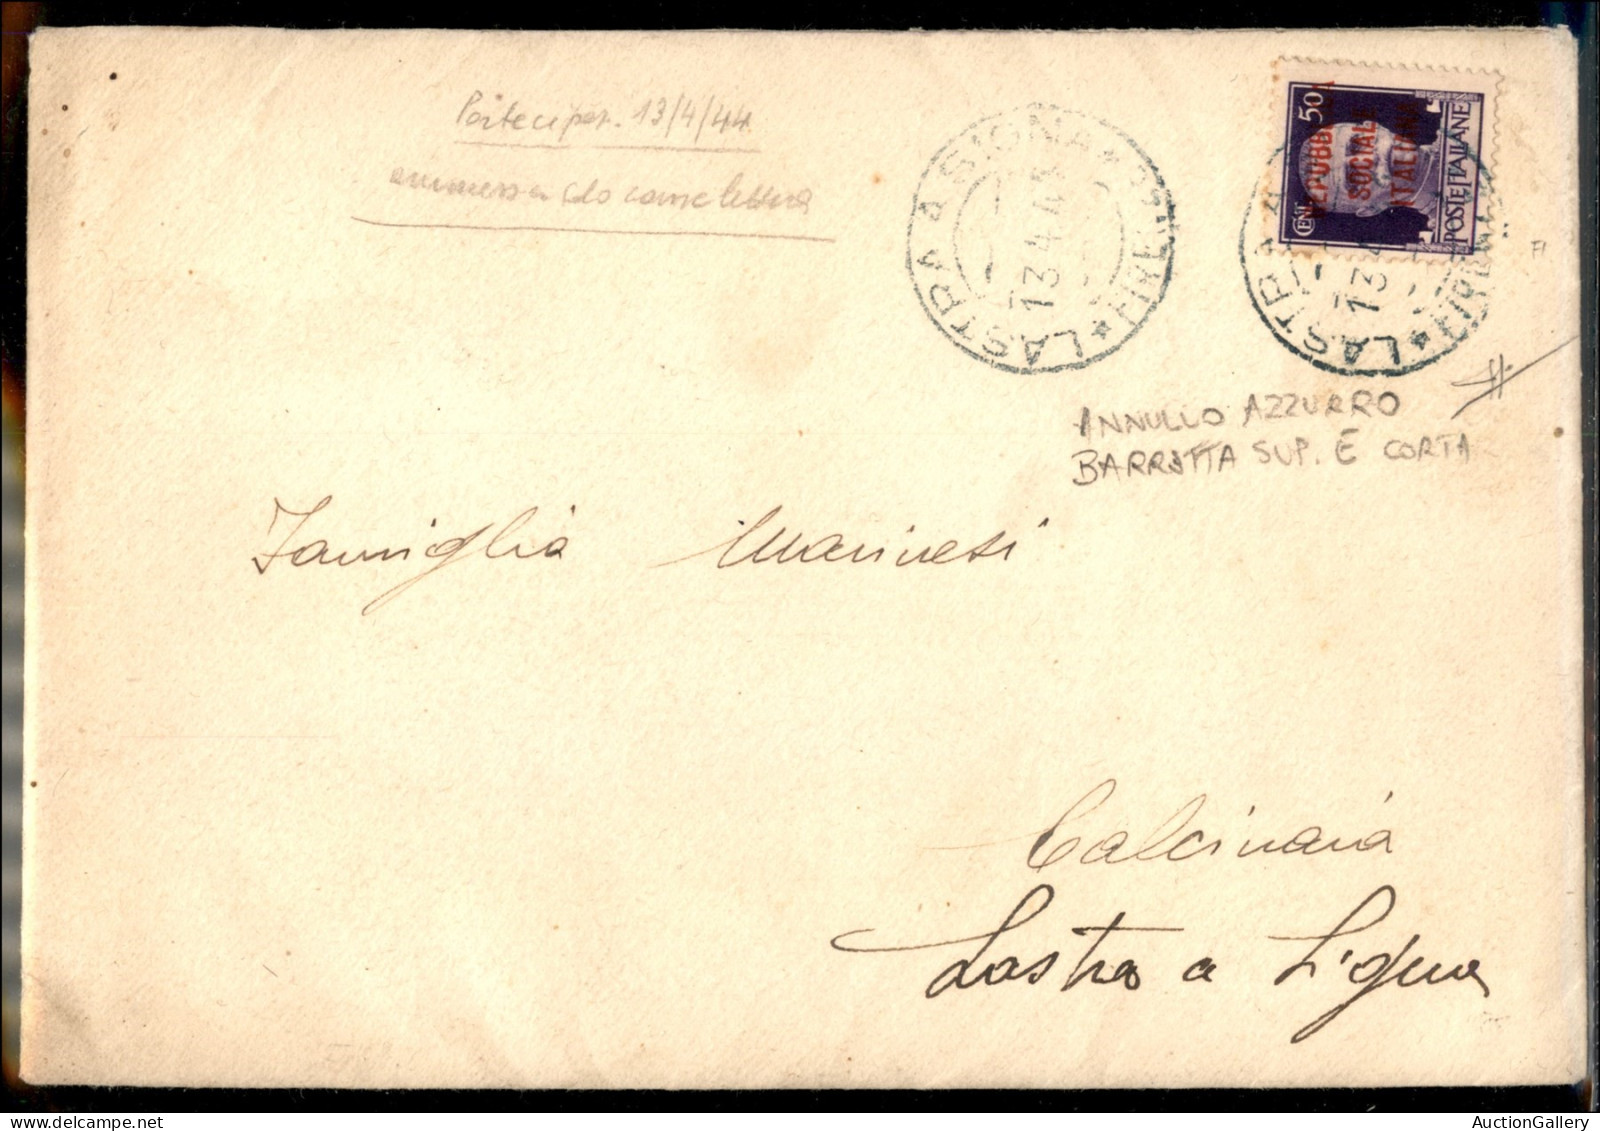 Partecipaz. 13/4/44
ammessa come lettera
50
CENT.
REPUBBLICA
SOCIALE
ITALIANA
POSTE ITALIANE
LASTRA A SIGNA * (FIRENZE) *
13.4.4
LASTRA A
13.4
* FIRENZE
FI
ANNULLO AZZURRO
BARRETTA SUP. E CORTA
Famiglia Marinesi
Calcinaia
Lastra a Signa
AuctionGallery